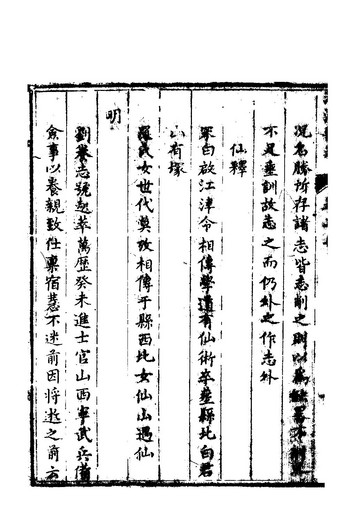 况名勝所存諸志皆志削之則以為
不足垂訓故志之而仍外之作志外
仙釋
白啟江津令相傳學道有仙術卒塟縣北白君
山有塚
羅氏女世代莫攷相傳于縣西北女仙山遇仙
明
劉養志號超萃萬歷癸未進士官山西寧武兵備
僉事以養親致仕稟宿慧不迷前因將逝之前云